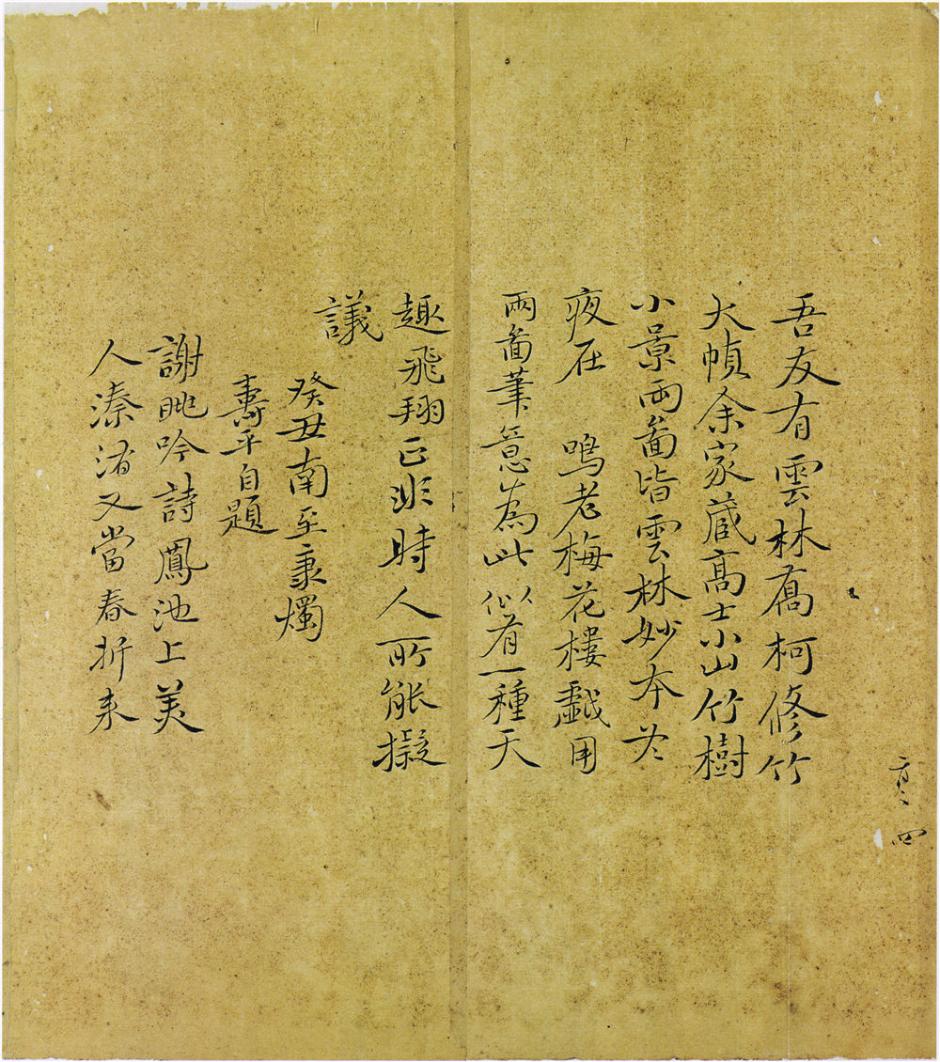 吾友有雲林喬柯修竹
大幀余家蔵高士小山竹樹
小景兩啚皆雲林妙本茶
夜在 鳴老梅花樓戲用
兩啚筆意為此似有一種天
趣飛翔正非時人所能擬
議
癸丑南至秉燭
壽平自題
謝朓吟詩鳳池上美
人溱洧又當春折来
四